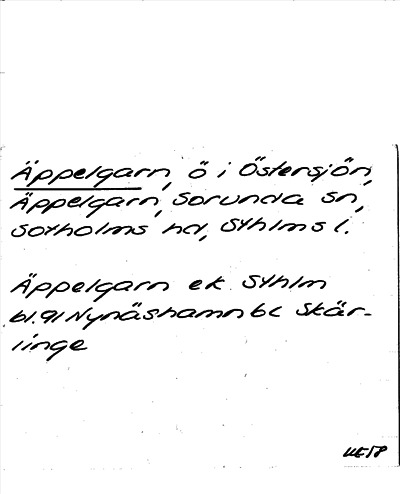 Äppelgarn, ö i Östersjön,
Äppelgarn, Sorunda Sn,
Sotholms hd, Sthlms l.
Äppelgarn ek Sthlm
bl. 91 Nynäshamn bl Skär-
linge